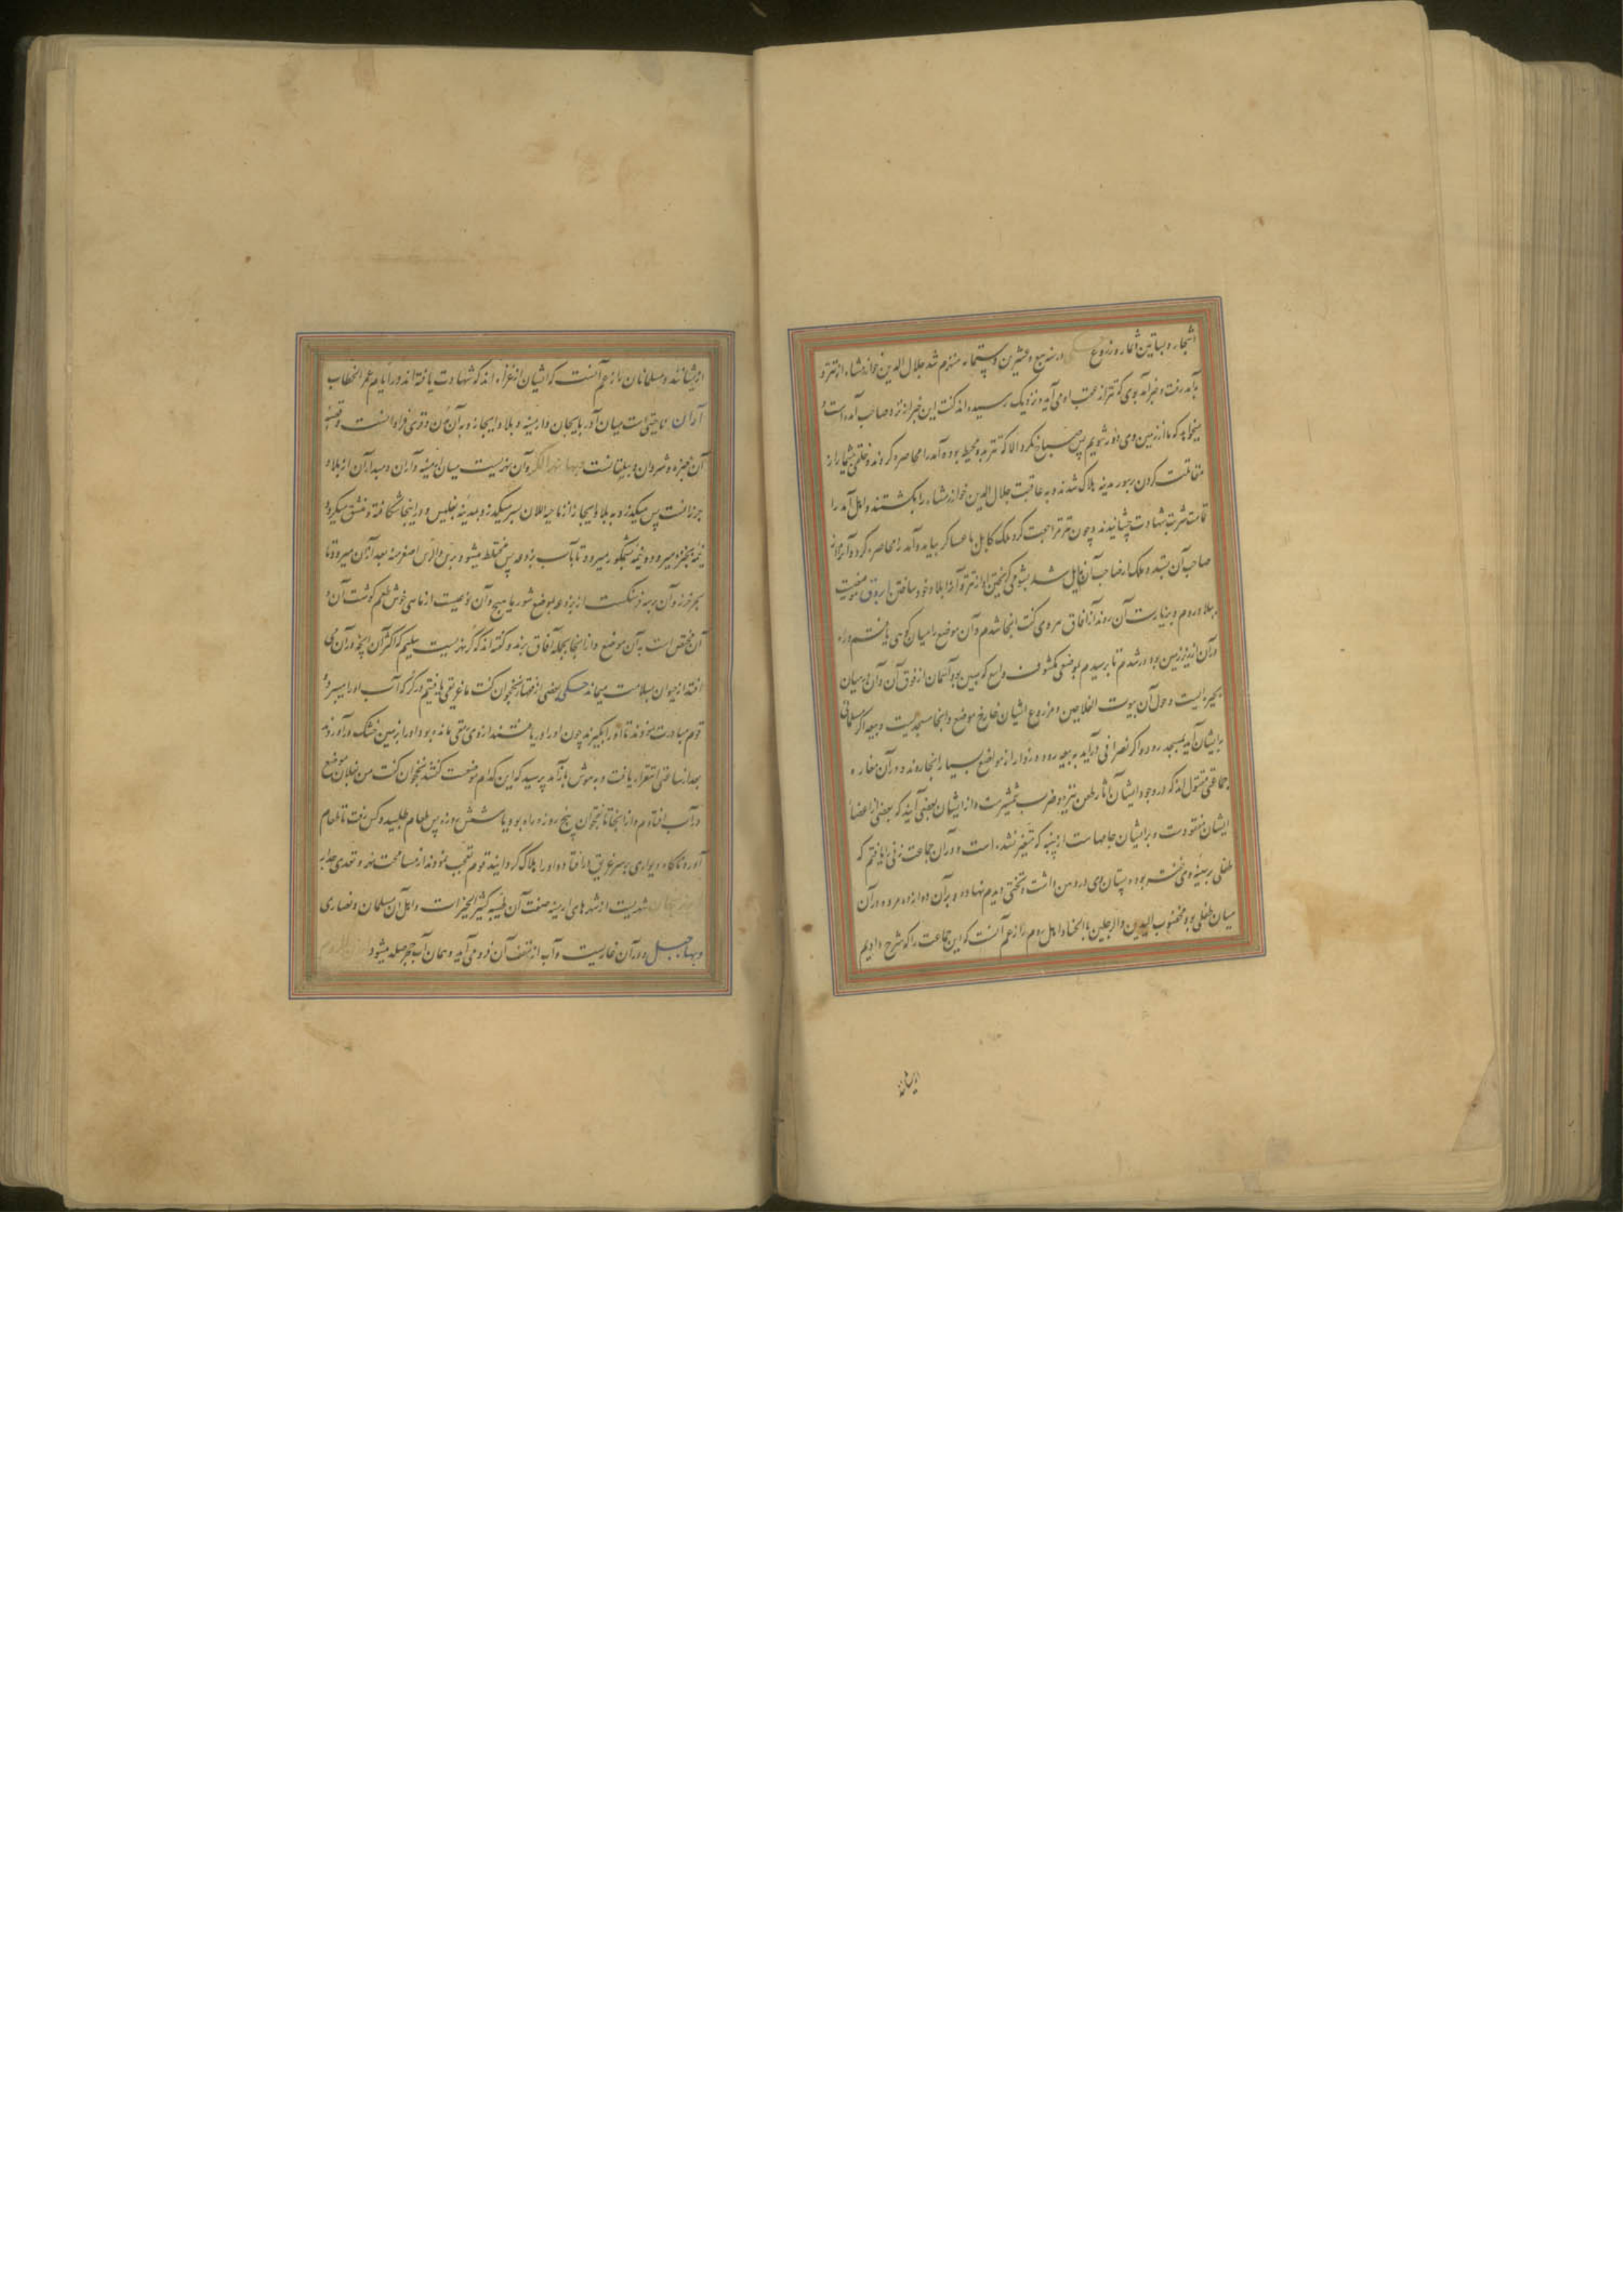 اشجار و بساتین و ثمار و زروع حکی در سنه سبع و عشرین و ستمائه منهزم شد جلال الدین خوارزمشاه از تتر و
بآمد رفت و خبر آمد بوی که تتر از عقب او می آید و نزدیک رسیده اند گفت این خبر از نزد صاحب آمد است و
میخواهد که ما از زمین وی دور شویم پس صباح نکرد الا که تتر بدو محیط بود و آمد را محاصره کردند و خلقی بیشمار از
مقاتلت کردن بر سور مدینه هلاک شدند و به عاقبت جلال الدین خوارزمشاه را بکشتند و اهل آمد را
تمامت شربت شهادت چشانیدند و چون تتر مراجعت کرد ملک کامل با عساکر بیامد و آمد را محاصره کرد و آنرا از
صاحب آن بستد و ملک از صاحب آن زایل شد بشومی گریختن او از تتر و آمدن بلاد خود ساختن
ببلاد روم و بزیارت آن روند از آفاق هروی گفت آنجا شدم و آن موضع را میان کوهی یافتم و راه
در آن از زیر زمین بود در شدم تا برسیدم بموضعی مکشوف وسیع کهفی بود آسمان از فوق آن و آن در میان
بحیره ایست و حول آن بیوت الفلاحین و مزروع ایشان خارج موضع و آنجا مسجدیست و بیعه اگر مسلمانی
بدیشان آید بمسجد رود و اگر نصرانی درآید به بیعه رود و زوار از مواضع بسیار آنجا روند و در آن مغاره
جماعتی مقتول اند که در وجوه ایشان آثار طعن نیزه و ضرب شمشیرست و از ایشان بعضی آیند که بعضی از اعضاء
ایشان مفقودست و بر ایشان جامهاست از پنبه که متغیر نشده است و در آن جماعت زنی را یافتم که
طفلی بر سینه وی خفته بود و پستان وی در دهن داشت و تختی دیدم نهاده و بر آن دوازده مرد و در آن
میان طفلی بود مخضوب الیدین و الرجلین بالحنا و اهل روم را زعم آنست که این جماعت را که شرح دادیم
ازیشانند و مسلمانان را زعم آنست که ایشان از غزاه اند که شهادت یافته اند در ایام عمر الخطاب
آران ناحیتی است میان آذربایجان و ارمینه و بلاد ابجاز و به آن مدن و قری فراوانست و قصبه
آن جنزه و شروان و بیلقانست و بها نهر الکر و آن نهریست میان ارمینه و آران و مبداء آن از بلاد
خرزانست پس میگذرد به بلاد ابجاز از ناحیه اللان سر میکند و بمدینه تفلیس و در اینجا شکافته و منشق میگردد
نیمه بجنزه میرود و نیمه بشمکور میرود تا باب برذعه پس مختلط میشود برس و الرس اصغر منه بعد از آن میرود تا
بحر خزر و آن برسه فرسنگست از برذعه بموضع شورماهیج و آن نوعیست از ماهی خوش طعم گوشت آن و
آن مختص است به آن موضع و از اینجا بجمله آفاق برند و گفته اند که کر نهریست سلیم که اکثر آن انچه در آن می
افتد از حیوان بسلامت میماند حکی بعضی از فقهاء نخجوان گفت ما غریقی یافتیم در کر که آب او را میبرد و
قوم مبادرت نمودند تا او را بگیرند چون او را دریافتند از وی رمقی مانده بود او را بزمین خشک درآوردند
بعد از ساعتی استقرار یافت و به هوش باز آمد پرسید که این کدام موضعست گفتند نخجوان گفت من بفلان موضع
در آب افتادم و از اینجا تا نخجوان پنج روزه راه بود یا شش روزه پس طعام طلبید و کس رفت تا طعام
آورد ناگاه دیواری بر سر غریق درافتاد و او را هلاک گردانید قوم تعجب نمودند از مسامحت نهر و تعدی جدار
شهریست از شهرهای ارمینه صفت آن طیبه کثیر الخیرات و اهل آن مسلمان و نصاری
و بها جبل و در آن غاریست و آب از سقف آن فرو می آید و همان آب حجر صلد میشود